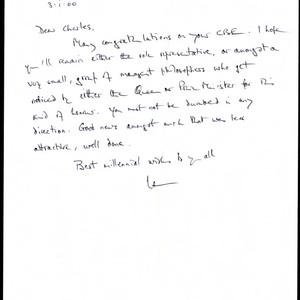 3.1.00
Dear Charles,
Many congratulations on your CBE. I hope
you'll remain either the sole representative, or amongst a
very small, group of management philosophers who get
noticed by either the Queen or Prime Minister for this
kind of honour. You must not be dumbed in any
direction. Good news amongst much that was less
attractive, well done.
Best millennial wishes to you all